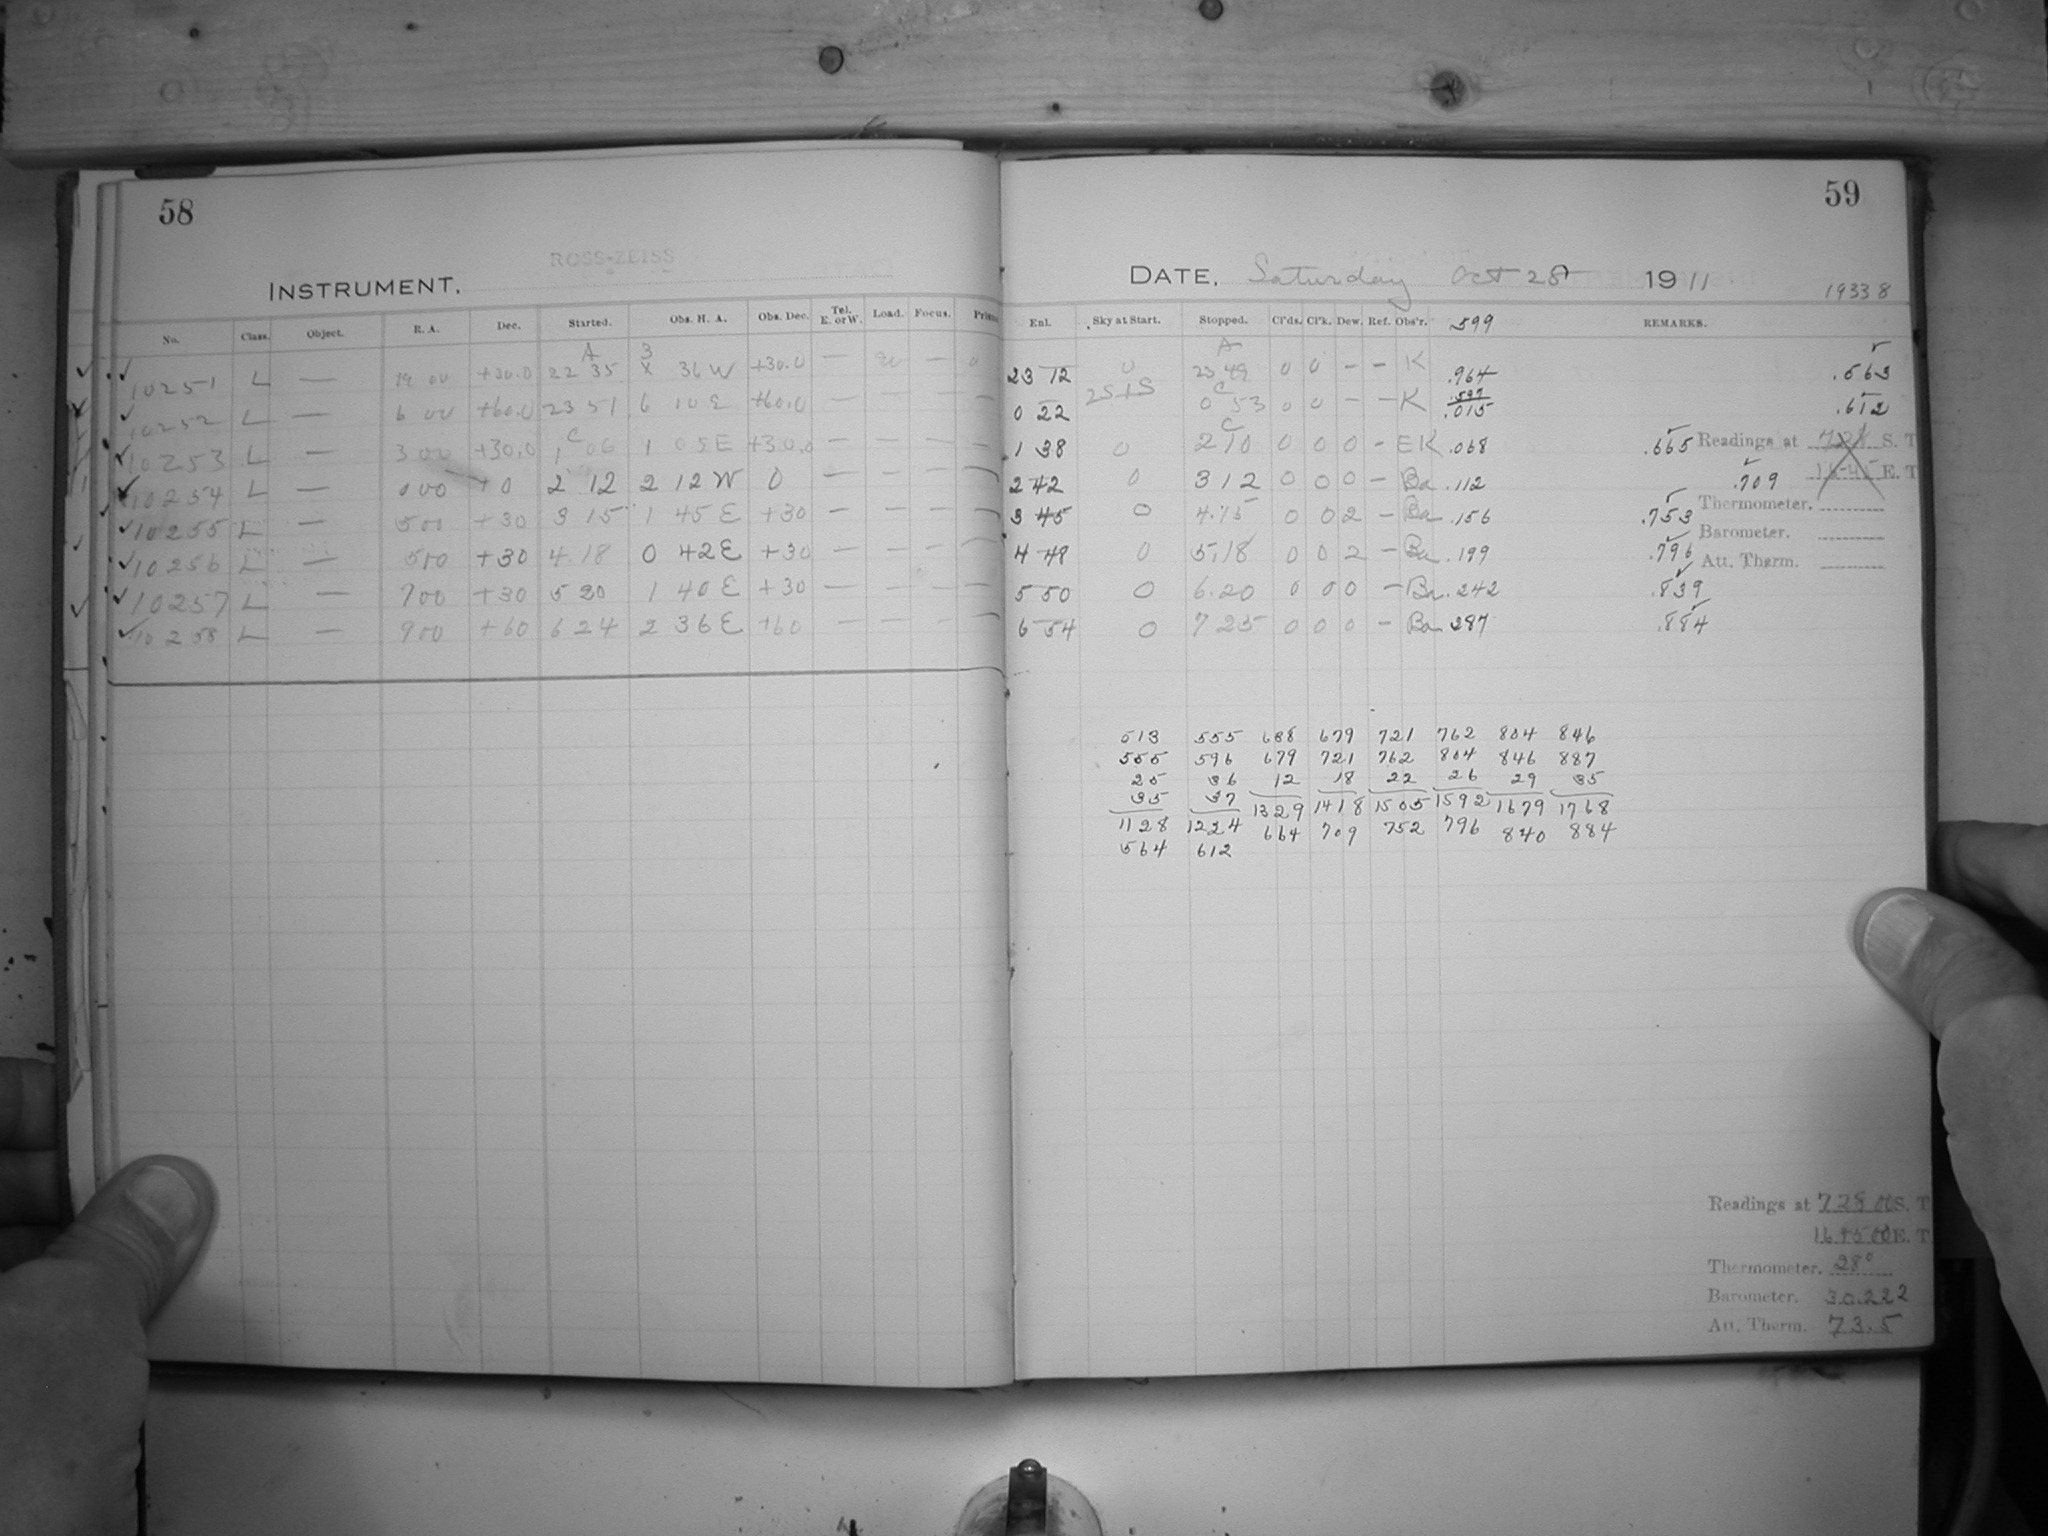 58
ROSS-ZEISS
INSTRUMENT.
No. Class. Object. R. A. Dec. Started. Obs. H. A. Obs. Dec. Tel. E. or W. Load. Focus.
10251 L — 19 00 +30.0 22 35 3 36 W +30.0 — — 
10252 L — 6 00 +60.0 23 51 6 10 E +60.0 — — — —
10253 L — 3 00 +30.0 1 06 1 05 E +30.0 — — — —
10254 L — 0 00 +0 2 12 2 12 W 0 — — — —
10255 L — 5 00 +30 3 15 1 45 E +30 — — — —
10256 L — 5 00 +30 4.18 0 42 E +30 — — — —
10257 L — 7 00 +30 5 20 1 40 E +30 — — — —
10258 L — 9 00 +60 6 24 2 36 E +60 — — — —
59
DATE, Saturday Oct 28 1911
19338
Enl. Sky at Start. Stopped. Cl'ds. Cl'k. Dew. Ref. Obs'r. 599 REMARKS.
A
23 12 0 23 49 0 0 — — K .964 .563
0 22 0 53 0 0 — — K .015 .612
1 38 0 2 10 0 0 0 — EK .068 .665
2 42 0 3 12 0 0 0 — Ba .112 .709
3 45 0 4.15 0 0 2 — Ba .156 .753
4 48 0 5.18 0 0 2 — Ba .199 .796
5 50 0 6.20 0 0 0 — Ba .242 .839
6 54 0 7 25 0 0 0 — Ba 287 .884
Readings at S. T
E. T
Thermometer.
Barometer.
Att. Therm.
513 555 638 679 721 762 804 846
555 596 679 721 762 804 846 887
25 36 12 18 22 26 29 35
35 37 1329 1418 1505 1592 1679 1768
1128 1224 664 709 752 796 840 884
564 612
Readings at 728 00 S. T
16 45 00 E. T
Thermometer. 28°
Barometer. 30.222
Att. Therm. 73.5